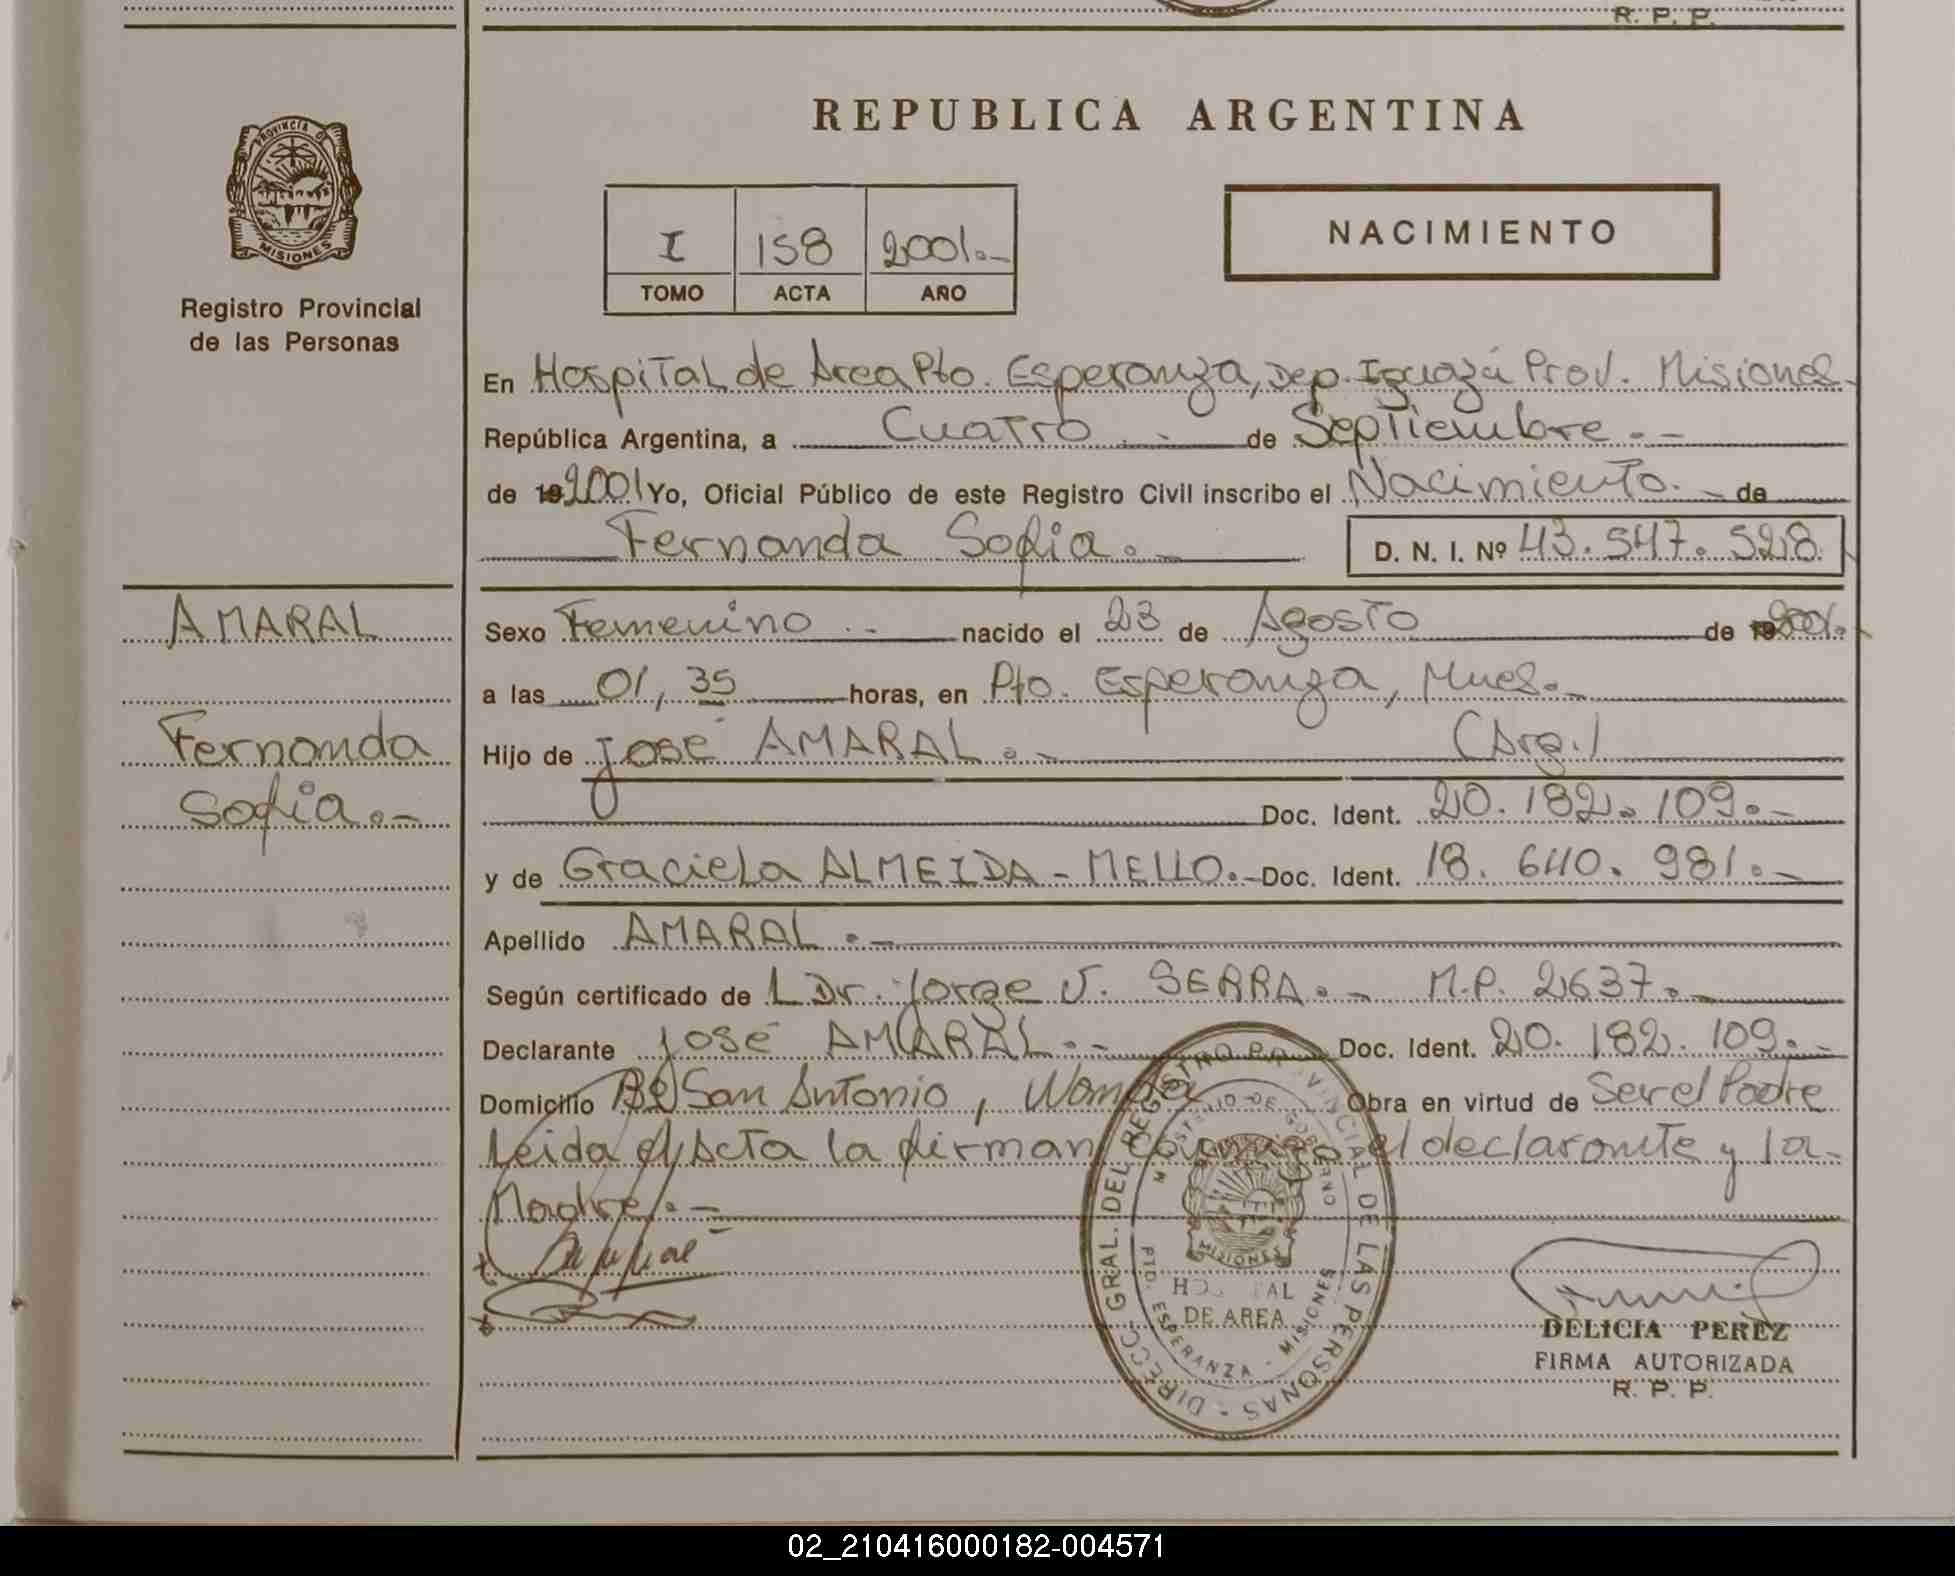 R. P. P.
REPUBLICA ARGENTINA
PROVINCIA D
MISIONES
Registro Provincial
de las Personas
I 158 2001.-
TOMO ACTA AÑO
NACIMIENTO
En Hospital de Area Pto. Esperanza, Dep. Iguazú Prov. Misiones.
República Argentina, a Cuatro.- de Septiembre.-
de 192001 Yo, Oficial Público de este Registro Civil inscribo el Nacimiento.- de
Fernanda Sofia.- D. N. I. Nº 43.547.528
AMARAL
Fernanda
Sofia.-
Sexo Femenino.- nacido el 23 de Agosto de 192001.
a las 01,35 horas, en Pto. Esperanza, Mnes.-
Hijo de José AMARAL.- (Arg.)
Doc. Ident. 20.182.109.-
y de Graciela ALMEIDA-MELLO.- Doc. Ident. 18.640.981.-
Apellido AMARAL.-
Según certificado de L Dr. Jorge J. SERRA.- M.P. 2637.-
Declarante José AMARAL.- Doc. Ident. 20.182.109.-
Domicilio Bº San Antonio, Wanda Obra en virtud de Ser el Padre
Leida el Acta la firman conmigo el declarante y la
Madre.-
DIRECC. GRAL. DEL REGISTRO PROVINCIAL DE LAS PERSONAS -
MINISTERIO DE GOBIERNO
MISIONES
HOSPITAL
DE AREA
PTO. ESPERANZA - MISIONES
DELICIA PEREZ
FIRMA AUTORIZADA
R. P. P.
02_210416000182-004571